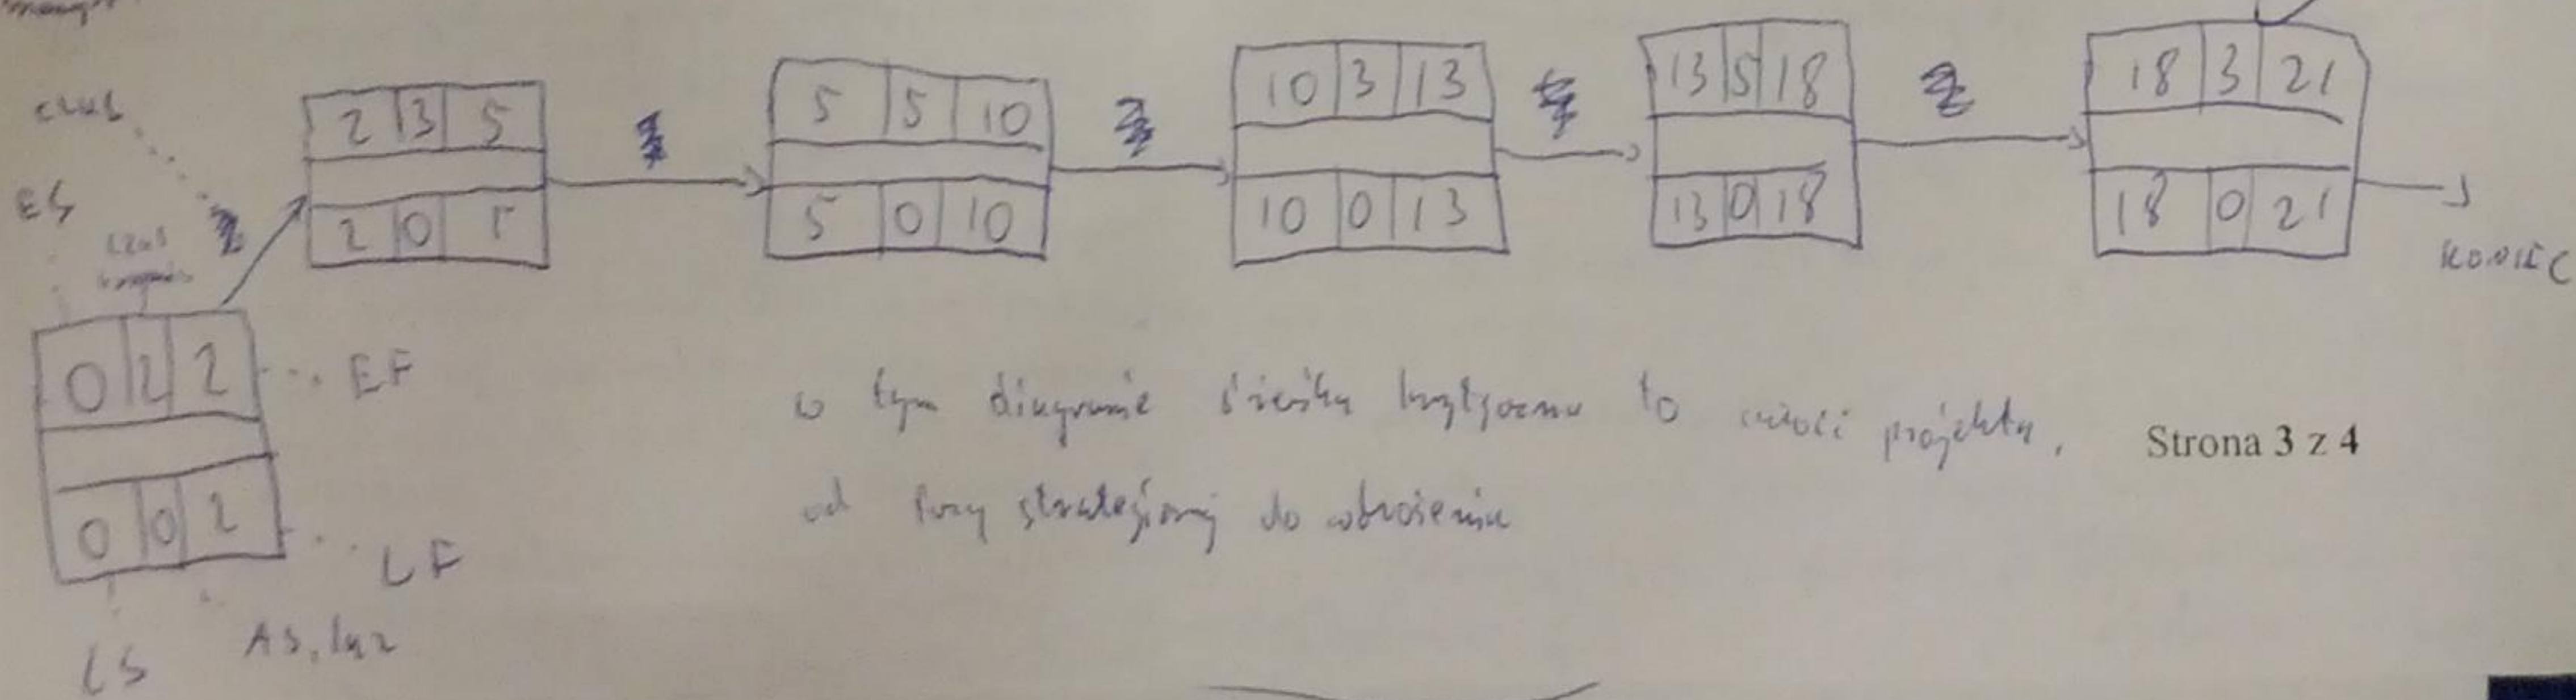 czas
ES
czas
0 2 2
0 0 2
EF
LF
LS
AS, luz
2 3 5
2 0 5
5 5 10
5 0 10
10 3 13
10 0 13
13 5 18
13 0 18
18 3 21
18 0 21
KONIEC
w tym diagramie ścieżka krytyczna to całość projektu,
od fazy strategicznej do wdrożenia
Strona 3 z 4